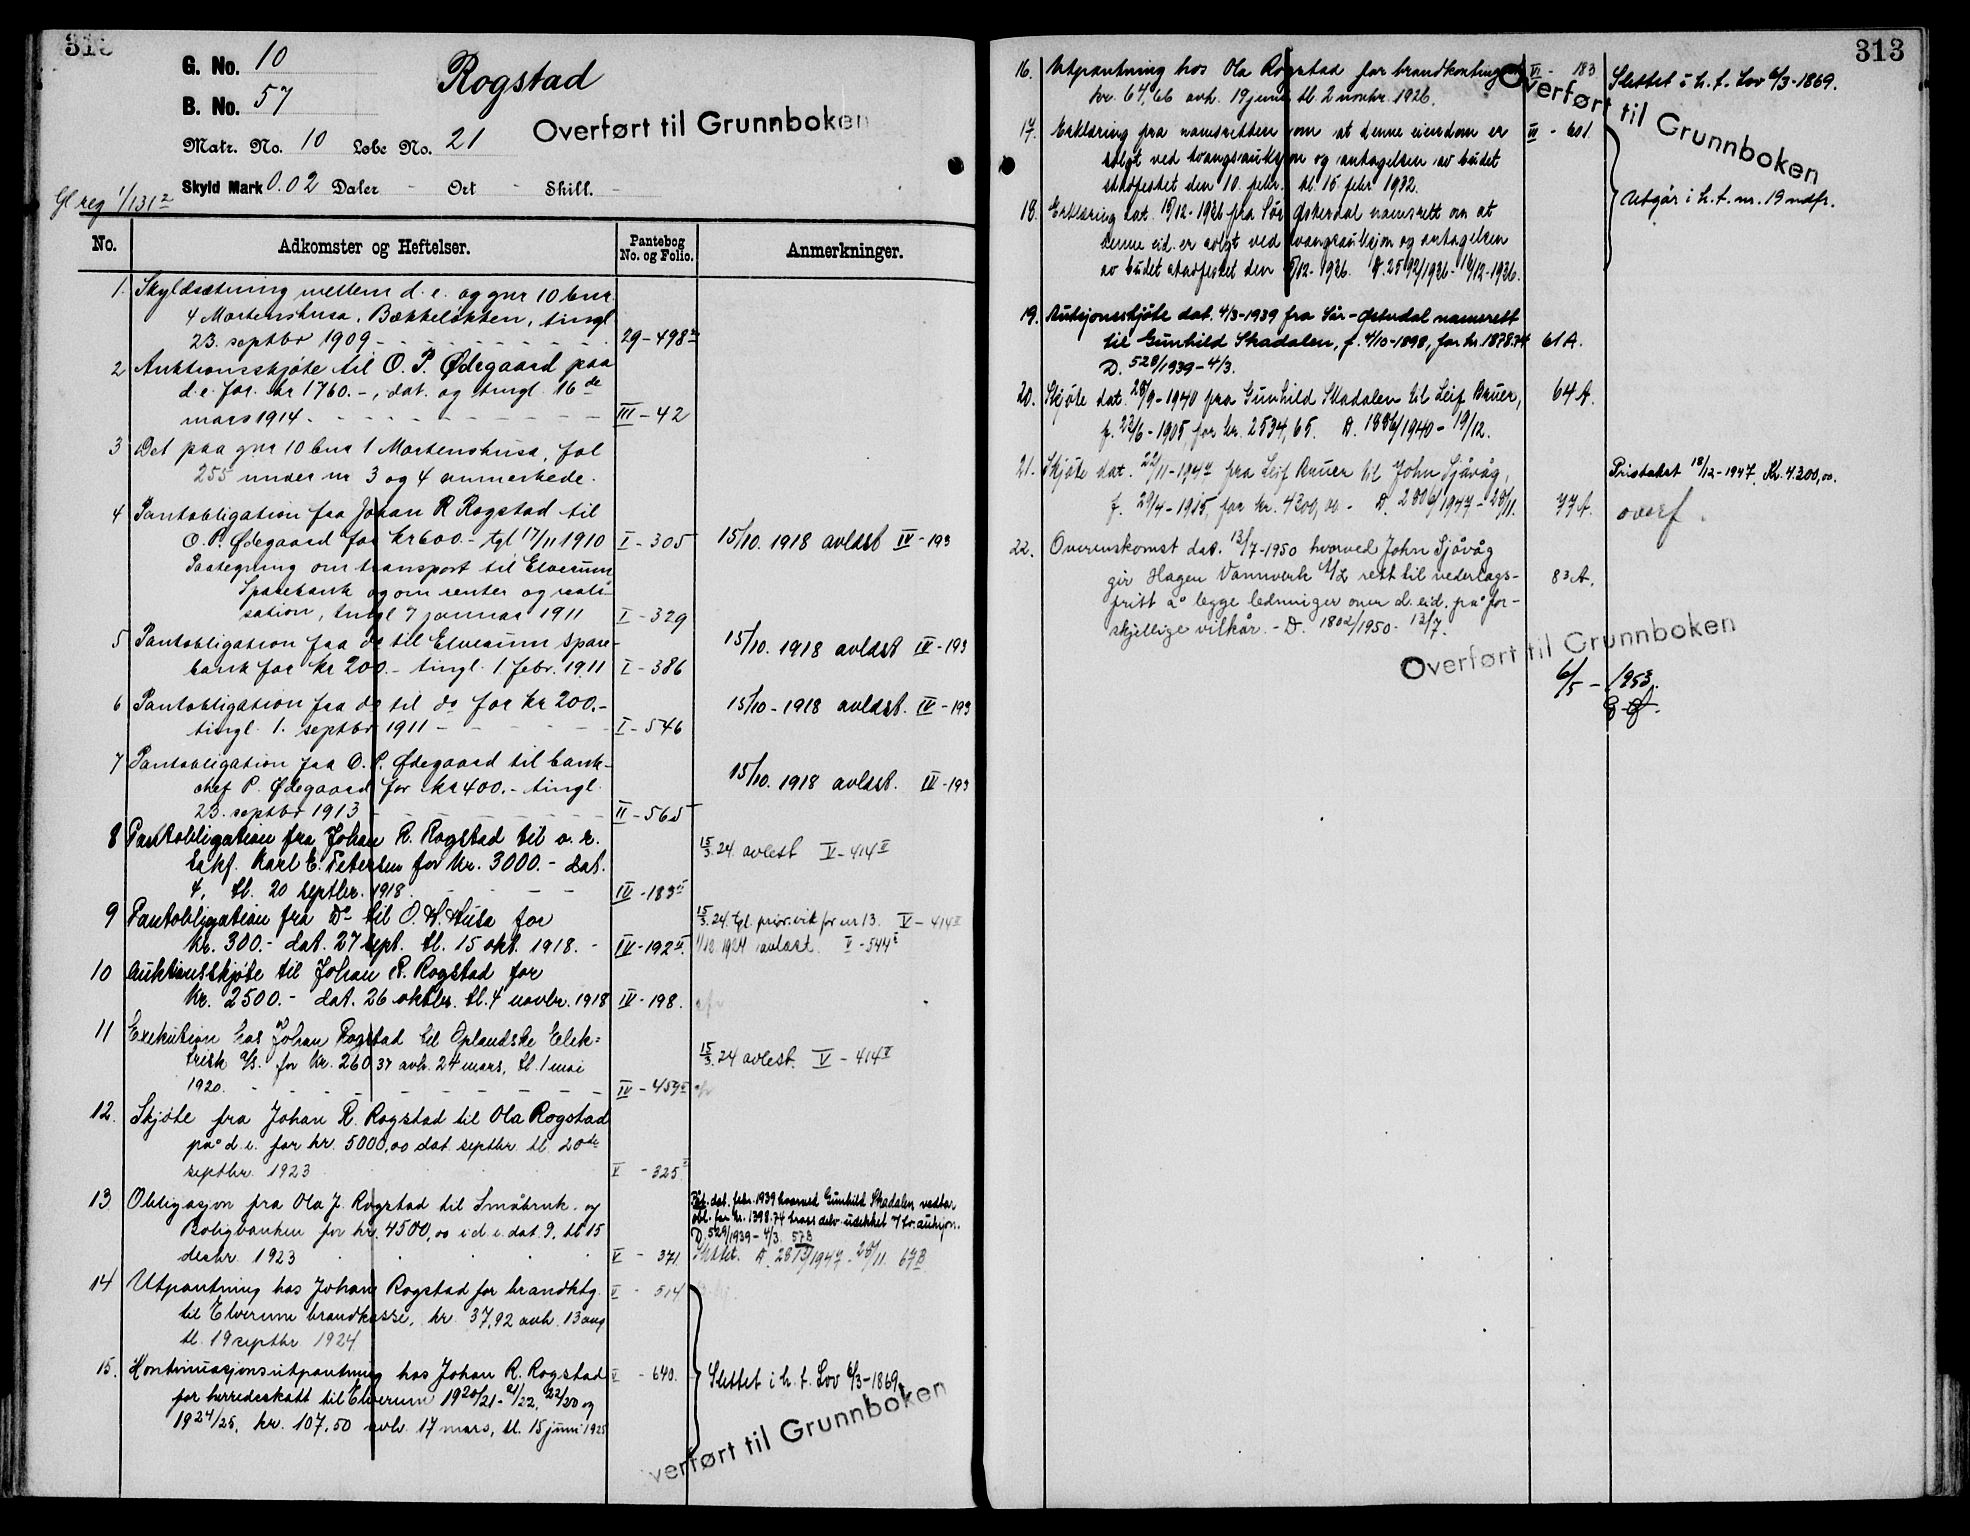 313
G. No. 10
Rogstad
B. No. 57
Overført til Grunnboken
Matr. No. 10 Løbe No. 21
Skyld Mark 0.02 Daler - Ort - Skill. -
Gl reg 1/131 2
No. Adkomster og Heftelser. Pantebog No. og Folio. Anmerkninger.
1. Skyldsætning mellem d. e. og gnr 10 bnr.
4 Mortenshusa, Bækkeløkken, tingl
23. septbr 1909 - 29-498
2 Auktionsskjøte til O. P. Ødegaard paa
d.e. for kr 1760.-, dat. og tingl. 16de
mars 1914. - III-42
3 Det paa gnr 10 bnr 1 Mortenshusa, fol
255 under nr 3 og 4 anmerkede.
4 Pantobligation fra Johan R Rogstad til
O. P. Ødegaard for kr 600.- tgl 17/11 1910 I-305 15/10. 1918 avlæst IV-193
Paategning om transport til Elverum
Sparebank og om renter og reali-
sation, tingl 7 januar 1911 I-329
5 Pantobligation fra do til Elverum Spare-
bank for kr 200.- tingl. 1 febr. 1911 I-386 15/10. 1918 avlæst IV-193
6 Pantobligation fra do til do for kr 200.-
tingl. 1. septbr 1911 - I-546 15/10-1918 avlæst. IV-193
7 Pantobligation fra O. P. Ødegaard til bank-
chef P. Ødegaard for kr 400.- tingl.
23. septbr 1913 II-565 15/10. 1918 avlæst. IV-193
8 Pantobligation fra Johan R. Rogstad til o. r.
sakf. Karl E. Petersen for kr. 3000.- dat.
4, tl. 20 septbr. 1918. IV-183 15/3. 24. avlest V-414
9 Pantobligation fra Do til O. H. Husa for
kr. 300.- dat. 27 sept. tl. 15 okt. 1918. - IV-192 15/3. 24. tgl. prior.vik for nr 13. V-414
1/12 1924 avlæst. V-544
10 Auktionsskjøte til Johan R. Rogstad for
kr. 2500.- dat. 26 oktbr. tl. 4 novbr. 1918 IV-198.
11 Exekution hos Johan Rogstad til Oplandske Elek=
trisk A/S. for kr. 260.37 avh. 24 mars, tl. 1 mai
1920. IV-459 15/3. 24 avlest. V-414
12. Skjøte fra Johan R. Rogstad til Ola Rogstad
på d. e. for kr. 5000,00 dat. septbr. tl. 20de
septbr. 1923 V-325
13 Obligasjon fra Ola J. Rogstad til Småbruk- og
Boligbanken for kr. 4500,00 i d. e. dat. 9, tl 15
desbr. 1923 V-371.
dat. febr. 1939 hvorved Gunhild Skadalen vedtar
obl. for kr. 1398.74 udekket v/tv. auksjon.
D. 529/1939-4/3. 57B
Slettet. 1947-28/11. 67B
14 Utpantning hos Johan Rogstad for brandktg.
til Elverum brandkasse, kr. 37,92 avh. 13 aug
tl. 19 septbr 1924 V-514
15. Kontinuasjonsutpantning hos Johan R. Rogstad
for herredsskatt til Elverum 1920/21-21/22, 22/23 og
1924/25, kr. 107,50 avh. 17 mars, tl. 15 juni 1925 V-640. Slettet i h. t. Lov 6/3-1869.
verført til Grunnboken
313
16. Utpantning hos Ola Rogstad for brandkontingent
kr. 64,66 avh. 19 juni tl. 2 novbr. 1926. VI-183 Slettet i h. t. Lov 6/3-1869.
Overført til Grunnboken
17. Erklæring fra namsretten om at denne eiendom er
solgt ved tvangsauksjon og antagelsen av budet
stadfestet den 10. febr. tl. 15 febr 1932. 601.
Utgår i h. t. nr. 19 ndfr.
18. Erklæring dat. 15/12-1936 fra Sør-Østerdal namsrett om at
denne eid. er solgt ved tvangsauksjon og antagelsen
av budet stadfestet den /12-1936. D. 2592/1936-16/12-1936.
19. Auksjonsskjøte dat. 4/3-1939 fra Sør-Østerdal namsrett
til Gunhild Skadalen, f. 4/10-1898, for kr. 1878.74 61A.
D. 528/1939-4/3.
20. Skjøte dat. 28/9-1940 fra Gunhild Skadalen til Leif Bruer, 64A.
f. 22/6-1905 for kr. 2534,65. D. 1886/1940-19/12.
21. Skjøte dat. 22/11-1947 fra Leif Bruer til John Sjåvåg,
f. 29/4-1915, for kr. 4200,00 - D. 2806/1947-28/11. 77A.
Pristakst 18/12-1947. Kr. 4.200,00.
overf.
22. Overenskomst dat. 12/7-1950 hvorved John Sjåvåg
gir Hagen Vannverk A/L rett til vederlags- 83A.
fritt å legge ledninger over d. eid. på for-
skjellige vilkår. - D. 1802/1950-13/7.
Overført til Grunnboken
6/5-1953.